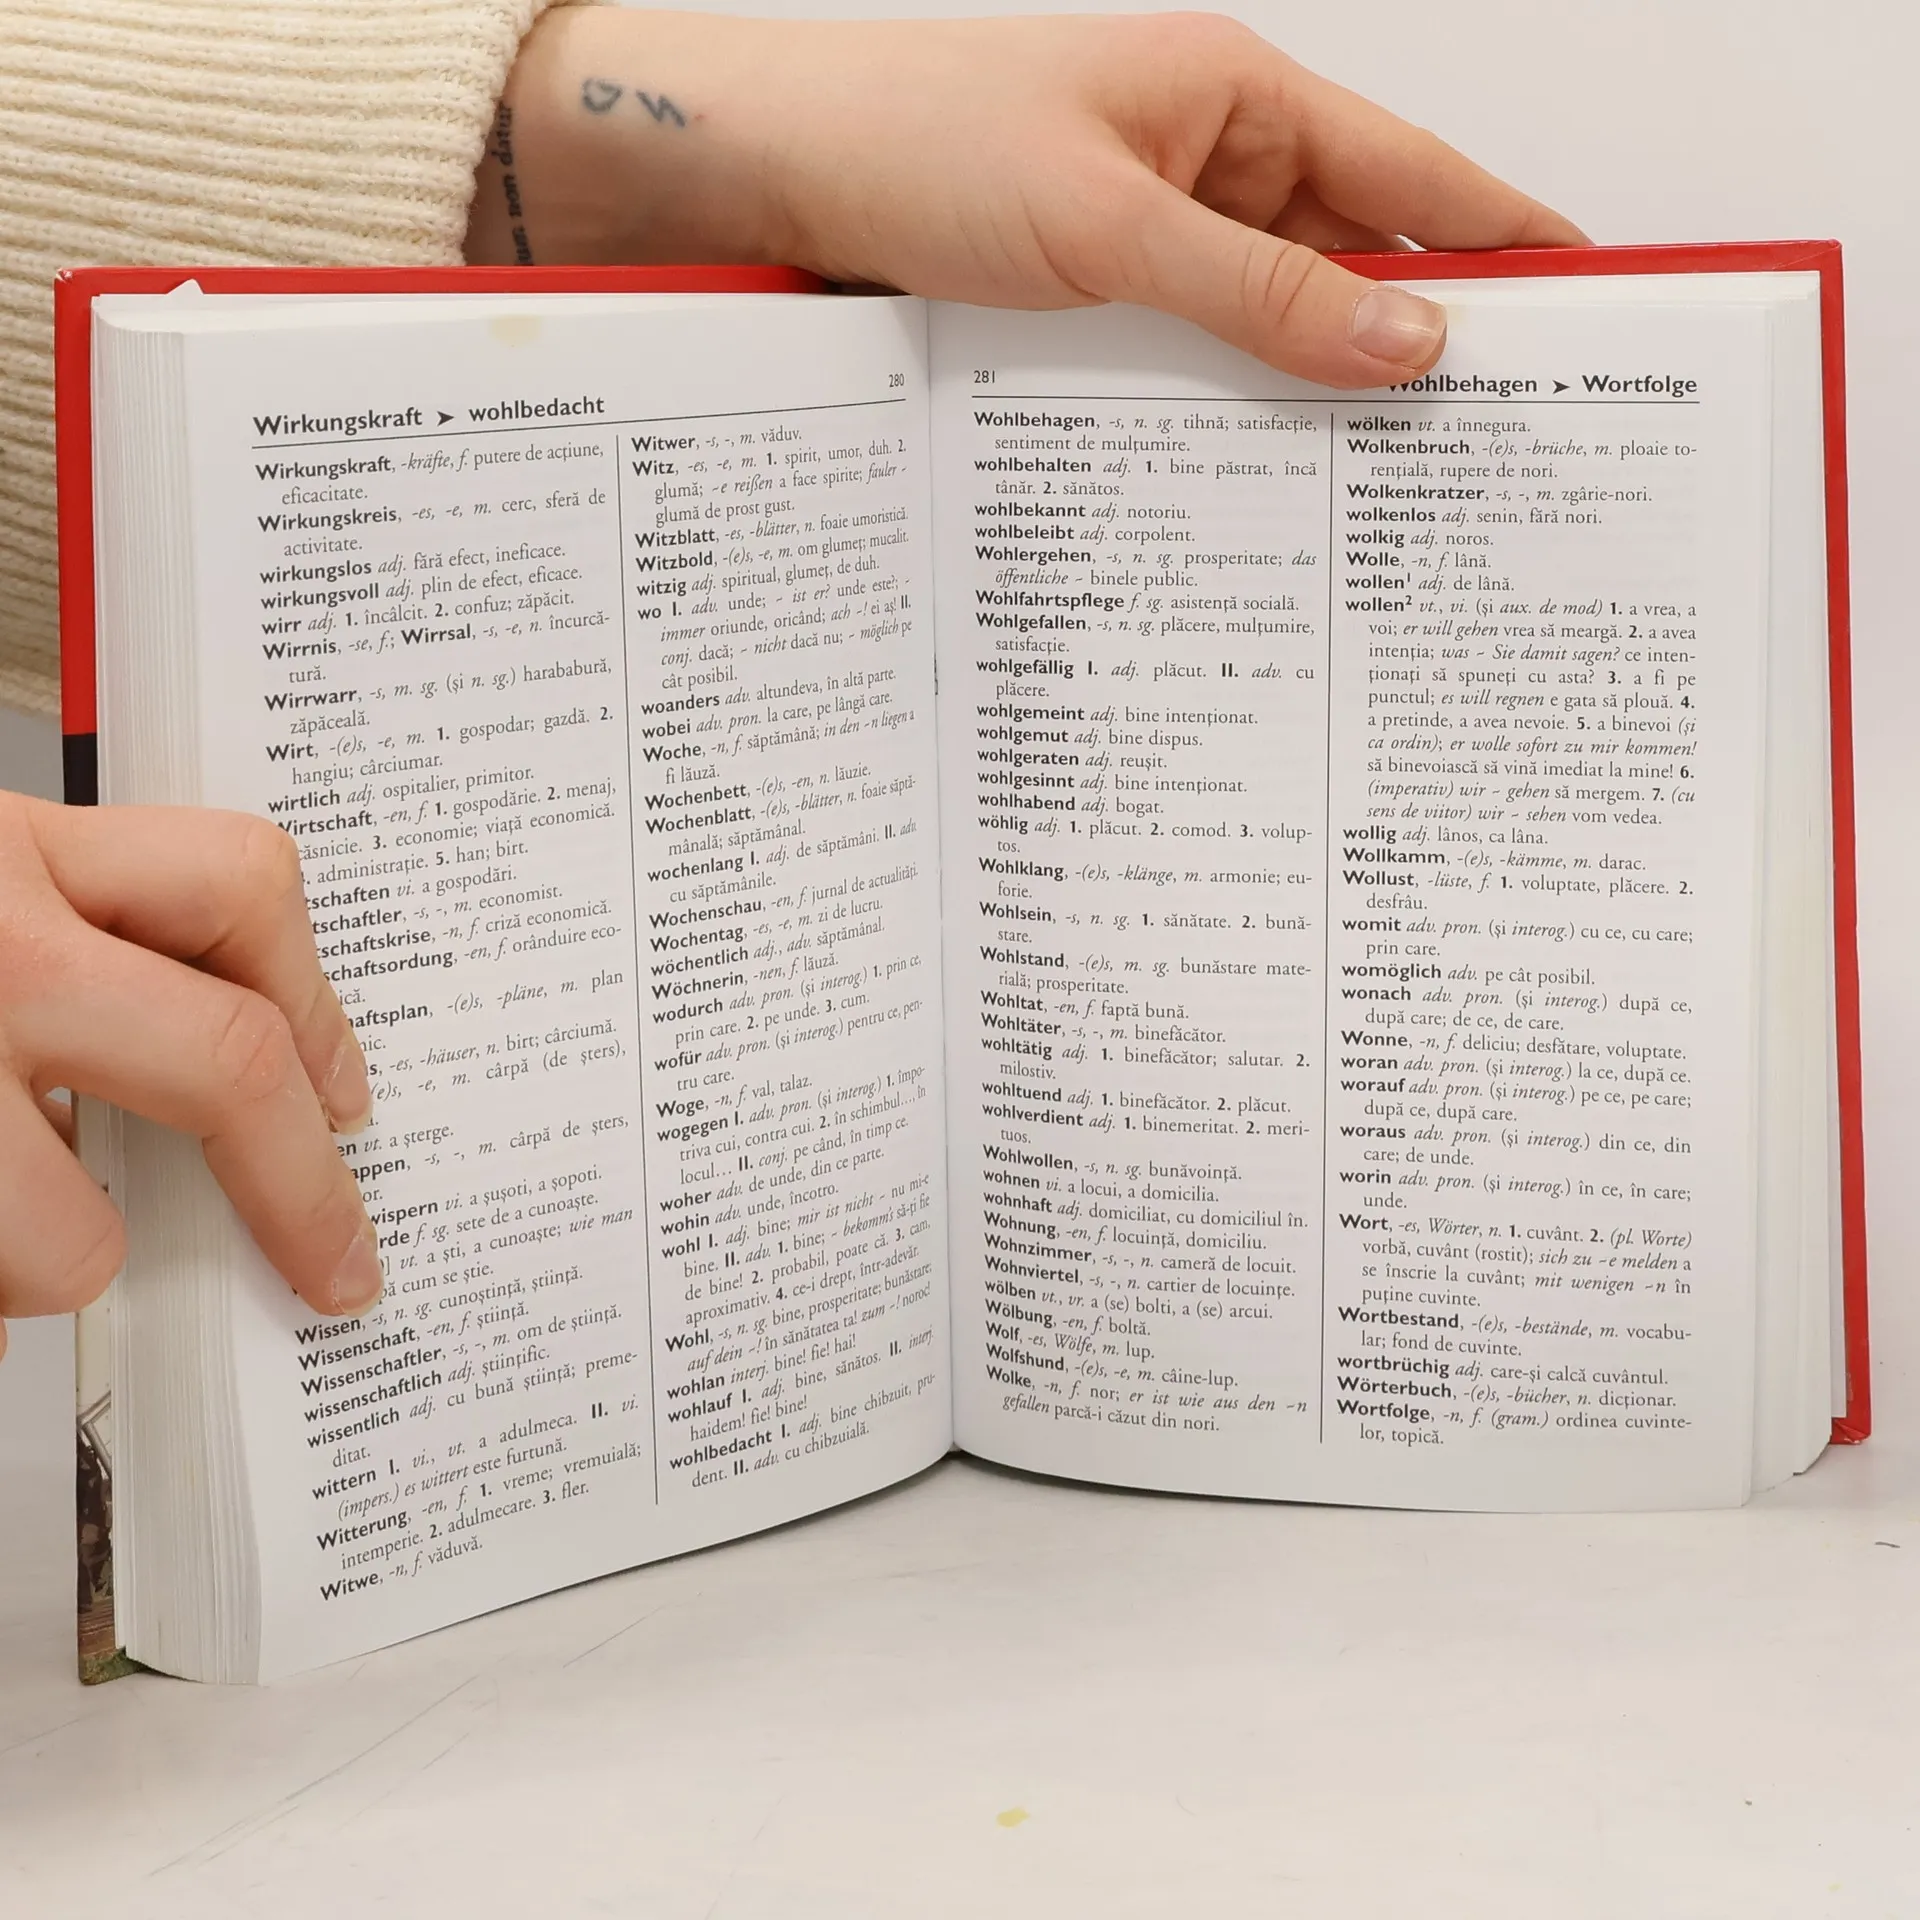 non datur
280
Wirkungskraft ➤ wohlbedacht
Wirkungskraft, -kräfte, f. putere de acțiune,
eficacitate.
Wirkungskreis, -es, -e, m. cerc, sferă de
activitate.
wirkungslos adj. fără efect, ineficace.
wirkungsvoll adj. plin de efect, eficace.
wirr adj. 1. încâlcit. 2. confuz; zăpăcit.
Wirrnis, -se, f.; Wirrsal, -s, -e, n. încurcă-
tură.
Wirrwarr, -s, m. sg. (și n. sg.) harababură,
zăpăceală.
Wirt, -(e)s, -e, m. 1. gospodar; gazdă. 2.
hangiu; cârciumar.
wirtlich adj. ospitalier, primitor.
Wirtschaft, -en, f. 1. gospodărie. 2. menaj,
căsnicie. 3. economie; viață economică.
administrație. 5. han; birt.
tschaften vi. a gospodări.
tschaftler, -s, -, m. economist.
schaftskrise, -n, f. criză economică.
schaftsordung, -en, f. orânduire eco-
ică.
haftsplan, -(e)s, -pläne, m. plan
nic.
s, -es, -häuser, n. birt; cârciumă.
(e)s, -e, m. cârpă (de șters),
en vt. a șterge.
appen, -s, -, m. cârpă de șters,
or.
wispern vi. a șușoti, a șopoti.
rde f. sg. sete de a cunoaște.
] vt. a ști, a cunoaște; wie man
pă cum se știe.
Wissen, -s, n. sg. cunoștință, știință.
Wissenschaft, -en, f. știință.
Wissenschaftler, -s, -, m. om de știință.
wissenschaftlich adj. științific.
wissentlich adj. cu bună știință; preme-
ditat.
wittern I. vi., vt. a adulmeca. II. vi.
(impers.) es wittert este furtună.
Witterung, -en, f. 1. vreme; vremuială;
intemperie. 2. adulmecare. 3. fler.
Witwe, -n, f. văduvă.
Witwer, -s, -, m. văduv.
Witz, -es, -e, m. 1. spirit, umor, duh. 2.
glumă; ~e reißen a face spirite; fauler ~
glumă de prost gust.
Witzblatt, -es, -blätter, n. foaie umoristică.
Witzbold, -(e)s, -e, m. om glumeț; mucalit.
witzig adj. spiritual, glumeț, de duh.
wo I. adv. unde; ~ ist er? unde este?; ~
immer oriunde, oricând; ach ~! ei aș! II.
conj. dacă; ~ nicht dacă nu; ~ möglich pe
cât posibil.
woanders adv. altundeva, în altă parte.
wobei adv. pron. la care, pe lângă care.
Woche, -n, f. săptămână; in den ~n liegen a
fi lăuză.
Wochenbett, -(e)s, -en, n. lăuzie.
Wochenblatt, -(e)s, -blätter, n. foaie săptă-
mânală; săptămânal.
wochenlang I. adj. de săptămâni. II. adv.
cu săptămânile.
Wochenschau, -en, f. jurnal de actualități.
Wochentag, -es, -e, m. zi de lucru.
wöchentlich adj., adv. săptămânal.
Wöchnerin, -nen, f. lăuză.
wodurch adv. pron. (și interog.) 1. prin ce,
prin care. 2. pe unde. 3. cum.
wofür adv. pron. (și interog.) pentru ce, pen-
tru care.
Woge, -n, f. val, talaz.
wogegen I. adv. pron. (și interog.) 1. împo-
triva cui, contra cui. 2. în schimbul..., în
locul... II. conj. pe când, în timp ce.
woher adv. de unde, din ce parte.
wohin adv. unde, încotro.
wohl I. adj. bine; mir ist nicht ~ nu mi-e
bine. II. adv. 1. bine; ~ bekomm's să-ți fie
de bine! 2. probabil, poate că. 3. cam,
aproximativ. 4. ce-i drept, într-adevăr.
Wohl, -s, n. sg. bine, prosperitate; bunăstare;
auf dein ~! în sănătatea ta! zum ~! noroc!
wohlan interj. bine! fie! hai!
wohlauf I. adj. bine, sănătos. II. interj.
haidem! fie! bine!
wohlbedacht I. adj. bine chibzuit, pru-
dent. II. adv. cu chibzuială.
281
Wohlbehagen ➤ Wortfolge
Wohlbehagen, -s, n. sg. tihnă; satisfacție,
sentiment de mulțumire.
wohlbehalten adj. 1. bine păstrat, încă
tânăr. 2. sănătos.
wohlbekannt adj. notoriu.
wohlbeleibt adj. corpolent.
Wohlergehen, -s, n. sg. prosperitate; das
öffentliche ~ binele public.
Wohlfahrtspflege f. sg. asistență socială.
Wohlgefallen, -s, n. sg. plăcere, mulțumire,
satisfacție.
wohlgefällig I. adj. plăcut. II. adv. cu
plăcere.
wohlgemeint adj. bine intenționat.
wohlgemut adj. bine dispus.
wohlgeraten adj. reușit.
wohlgesinnt adj. bine intenționat.
wohlhabend adj. bogat.
wöhlig adj. 1. plăcut. 2. comod. 3. volup-
tos.
Wohlklang, -(e)s, -klänge, m. armonie; eu-
forie.
Wohlsein, -s, n. sg. 1. sănătate. 2. bună-
stare.
Wohlstand, -(e)s, m. sg. bunăstare mate-
rială; prosperitate.
Wohltat, -en, f. faptă bună.
Wohltäter, -s, -, m. binefăcător.
wohltätig adj. 1. binefăcător; salutar. 2.
milostiv.
wohltuend adj. 1. binefăcător. 2. plăcut.
wohlverdient adj. 1. binemeritat. 2. meri-
tuos.
Wohlwollen, -s, n. sg. bunăvoință.
wohnen vi. a locui, a domicilia.
wohnhaft adj. domiciliat, cu domiciliul în.
Wohnung, -en, f. locuință, domiciliu.
Wohnzimmer, -s, -, n. cameră de locuit.
Wohnviertel, -s, -, n. cartier de locuințe.
wölben vt., vr. a (se) bolti, a (se) arcui.
Wölbung, -en, f. boltă.
Wolf, -es, Wölfe, m. lup.
Wolfshund, -(e)s, -e, m. câine-lup.
Wolke, -n, f. nor; er ist wie aus den ~n
gefallen parcă-i căzut din nori.
wölken vt. a înnegura.
Wolkenbruch, -(e)s, -brüche, m. ploaie to-
rențială, rupere de nori.
Wolkenkratzer, -s, -, m. zgârie-nori.
wolkenlos adj. senin, fără nori.
wolkig adj. noros.
Wolle, -n, f. lână.
wollen¹ adj. de lână.
wollen² vt., vi. (și aux. de mod) 1. a vrea, a
voi; er will gehen vrea să meargă. 2. a avea
intenția; was ~ Sie damit sagen? ce inten-
ționați să spuneți cu asta? 3. a fi pe
punctul; es will regnen e gata să plouă. 4.
a pretinde, a avea nevoie. 5. a binevoi (și
ca ordin); er wolle sofort zu mir kommen!
să binevoiască să vină imediat la mine! 6.
(imperativ) wir ~ gehen să mergem. 7. (cu
sens de viitor) wir ~ sehen vom vedea.
wollig adj. lânos, ca lâna.
Wollkamm, -(e)s, -kämme, m. darac.
Wollust, -lüste, f. 1. voluptate, plăcere. 2.
desfrâu.
womit adv. pron. (și interog.) cu ce, cu care;
prin care.
womöglich adv. pe cât posibil.
wonach adv. pron. (și interog.) după ce,
după care; de ce, de care.
Wonne, -n, f. deliciu; desfătare, voluptate.
woran adv. pron. (și interog.) la ce, după ce.
worauf adv. pron. (și interog.) pe ce, pe care;
după ce, după care.
woraus adv. pron. (și interog.) din ce, din
care; de unde.
worin adv. pron. (și interog.) în ce, în care;
unde.
Wort, -es, Wörter, n. 1. cuvânt. 2. (pl. Worte)
vorbă, cuvânt (rostit); sich zu ~e melden a
se înscrie la cuvânt; mit wenigen ~n în
puține cuvinte.
Wortbestand, -(e)s, -bestände, m. vocabu-
lar; fond de cuvinte.
wortbrüchig adj. care-și calcă cuvântul.
Wörterbuch, -(e)s, -bücher, n. dicționar.
Wortfolge, -n, f. (gram.) ordinea cuvinte-
lor, topică.